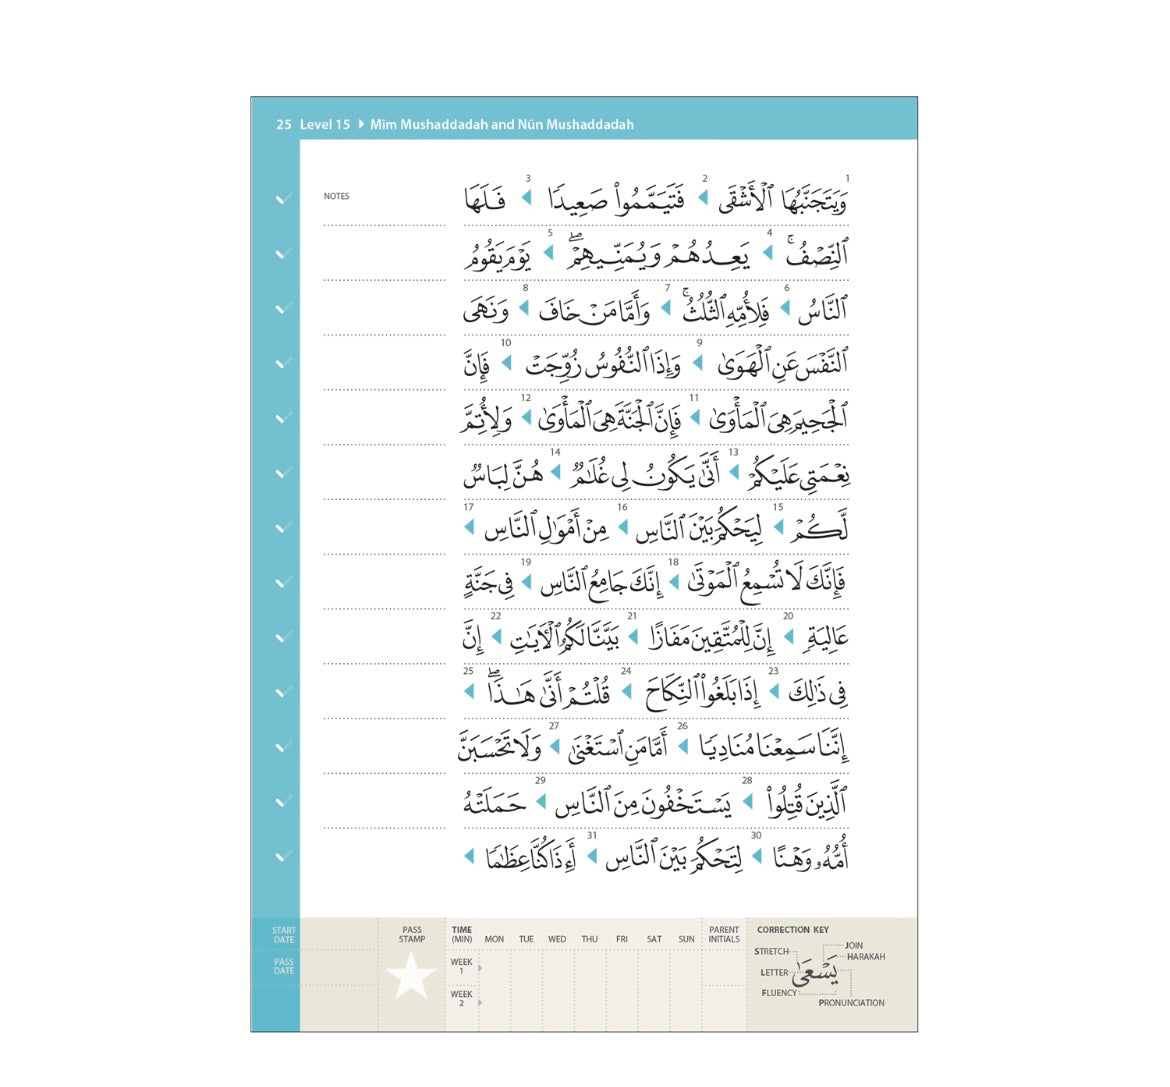 25 Level 15 ▸ Mīm Mushaddadah and Nūn Mushaddadah
NOTES
1 وَيَتَجَنَّبُهَا ٱلْأَشْقَى 2 فَتَيَمَّمُوا۟ صَعِيدًا 3 فَلَهَا
ٱلنِّصْفُ ۚ 4 يَعِدُهُمْ وَيُمَنِّيهِمْ ۖ 5 يَوْمَ يَقُومُ
ٱلنَّاسُ 6 فَلِأُمِّهِ ٱلثُّلُثُ ۚ 7 وَأَمَّا مَنْ خَافَ 8 وَنَهَى
ٱلنَّفْسَ عَنِ ٱلْهَوَىٰ 9 وَإِذَا ٱلنُّفُوسُ زُوِّجَتْ 10 فَإِنَّ
ٱلْجَحِيمَ هِىَ ٱلْمَأْوَىٰ 11 فَإِنَّ ٱلْجَنَّةَ هِىَ ٱلْمَأْوَىٰ 12 وَلِأُتِمَّ
نِعْمَتِى عَلَيْكُمْ 13 أَنَّىٰ يَكُونُ لِى غُلَـٰمٌ 14 هُنَّ لِبَاسٌ
لَّكُمْ 15 لِيَحْكُمَ بَيْنَ ٱلنَّاسِ 16 مِنْ أَمْوَٰلِ ٱلنَّاسِ 17
فَإِنَّكَ لَا تُسْمِعُ ٱلْمَوْتَىٰ 18 إِنَّكَ جَامِعُ ٱلنَّاسِ 19 فِى جَنَّةٍ
عَالِيَةٍ 20 إِنَّ لِلْمُتَّقِينَ مَفَازًا 21 بَيَّنَّا لَكُمُ ٱلْـَٔايَـٰتِ 22 إِنَّ
فِى ذَٰلِكَ 23 إِذَا بَلَغُوا۟ ٱلنِّكَاحَ 24 قُلْتُمْ أَنَّىٰ هَـٰذَا ۖ 25
إِنَّنَا سَمِعْنَا مُنَادِيًا 26 أَمَّا مَنِ ٱسْتَغْنَىٰ 27 وَلَا تَحْسَبَنَّ
ٱلَّذِينَ قُتِلُوا۟ 28 يَسْتَخْفُونَ مِنَ ٱلنَّاسِ 29 حَمَلَتْهُ
أُمُّهُۥ وَهْنًا 30 لِتَحْكُمَ بَيْنَ ٱلنَّاسِ 31 أَءِذَا كُنَّا عِظَـٰمًا
START DATE
PASS DATE
PASS STAMP
TIME (MIN) MON TUE WED THU FRI SAT SUN
WEEK 1
WEEK 2
PARENT INITIALS
CORRECTION KEY
STRETCH JOIN
HARAKAH
LETTER يَسْعَىٰ
FLUENCY
PRONUNCIATION